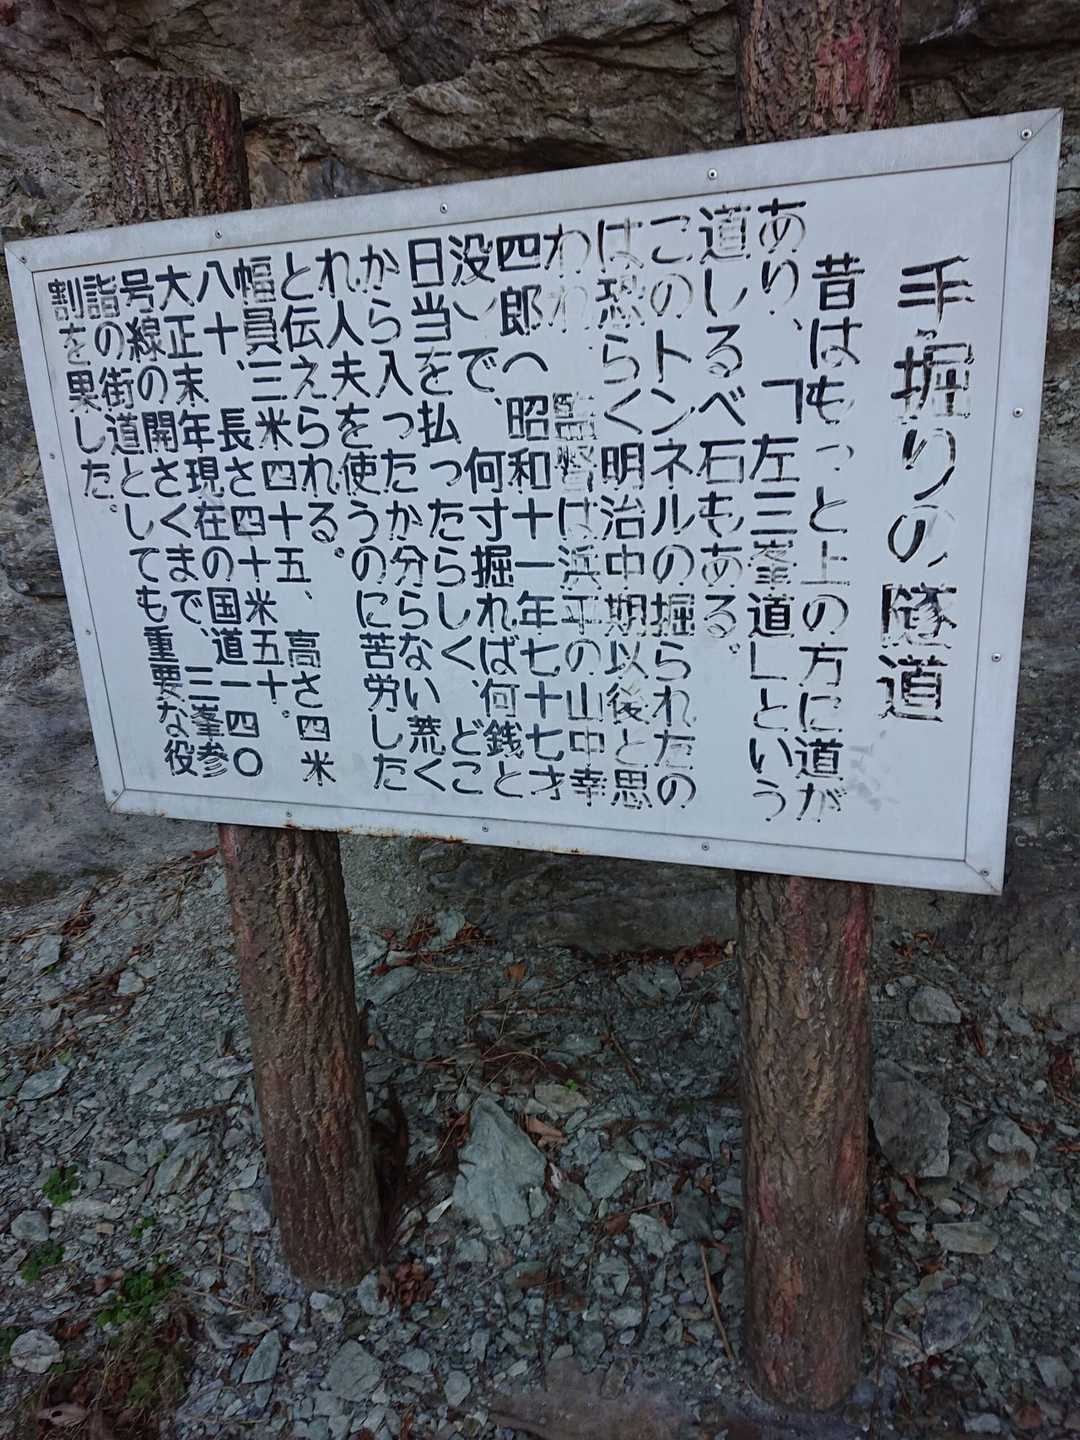 手掘りの隧道
昔はもっと上の方に道が
あり、「左三峯道」という
道しるべ石もある。
このトンネルの掘られたの
は恐らく明治中期以後と思
われ、監督は浜平の山中幸
四郎へ昭和十一年七十七才
没)で、何寸掘れば何銭と
日当を払ったらしく、どこ
から入ったか分らない荒く
れ人夫を使うのに苦労した
と伝えられる。
幅員三米四十五、高さ四米
八十、長さ四十米五十。
大正末年現在の国道一四〇
号線の開さくまで、三峯参
詣の街道としても重要な役
割を果した。